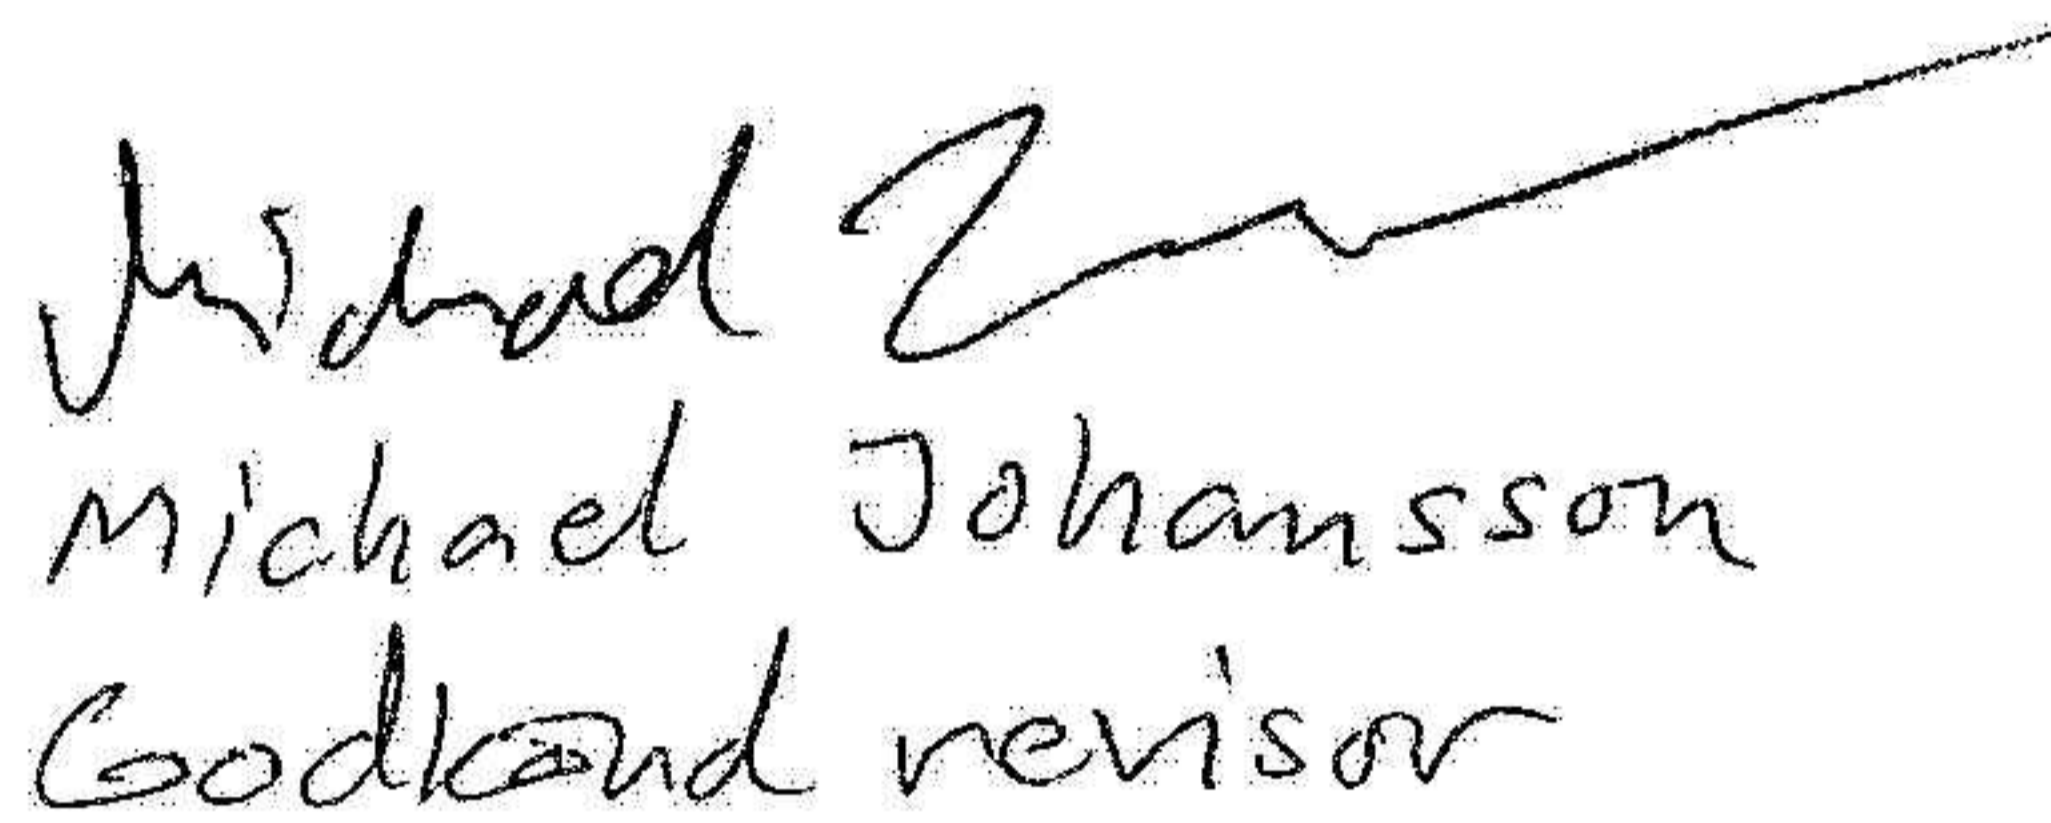 Michael
Michael Johansson
Godkänd revisor